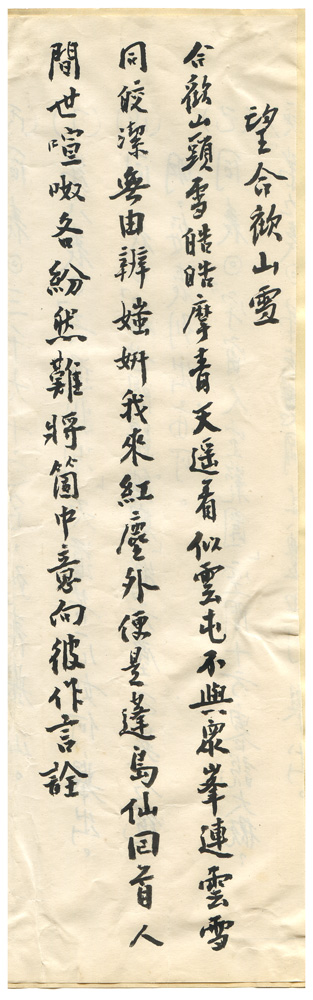 望合歡山雪
合歡山頭雪皓皓摩青天遥看似雲屯不與眾峯連雲雪
同皎潔無由辨媸妍我來紅塵外便是蓬島仙回首人
間世喧呶各紛然難將箇中意向彼作言詮